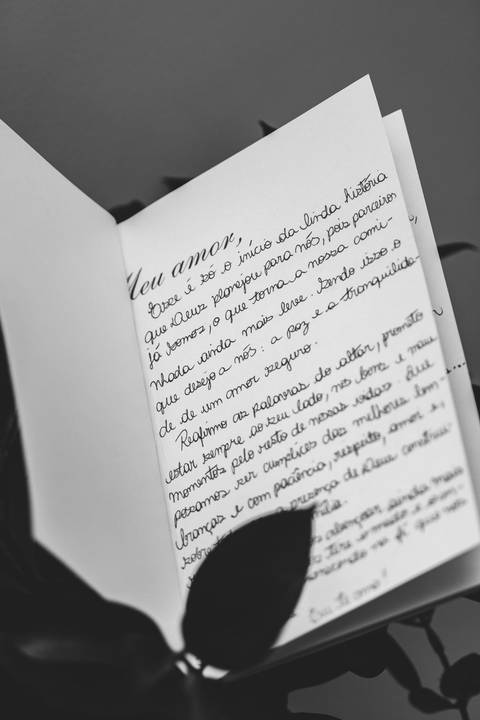 Meu amor,
Esse é só o início da linda história
que Deus planejou para nós, pois parceiros
já somos, o que torna a nossa cami-
nhada ainda mais leve. Sendo isso o
que desejo a nós: a paz e a tranquilida-
de de um amor seguro.
Reafirmo as palavras do altar, prometo
estar sempre ao seu lado, nos bons e maus
momentos pelo resto de nossas vidas. Que
possamos ser cúmplices das melhores lem-
branças e com paciência, respeito, amor e,
sobretudo a presença de Deus
alcançar ainda mais
tire o medo e
na fé que nos
Eu te amo!